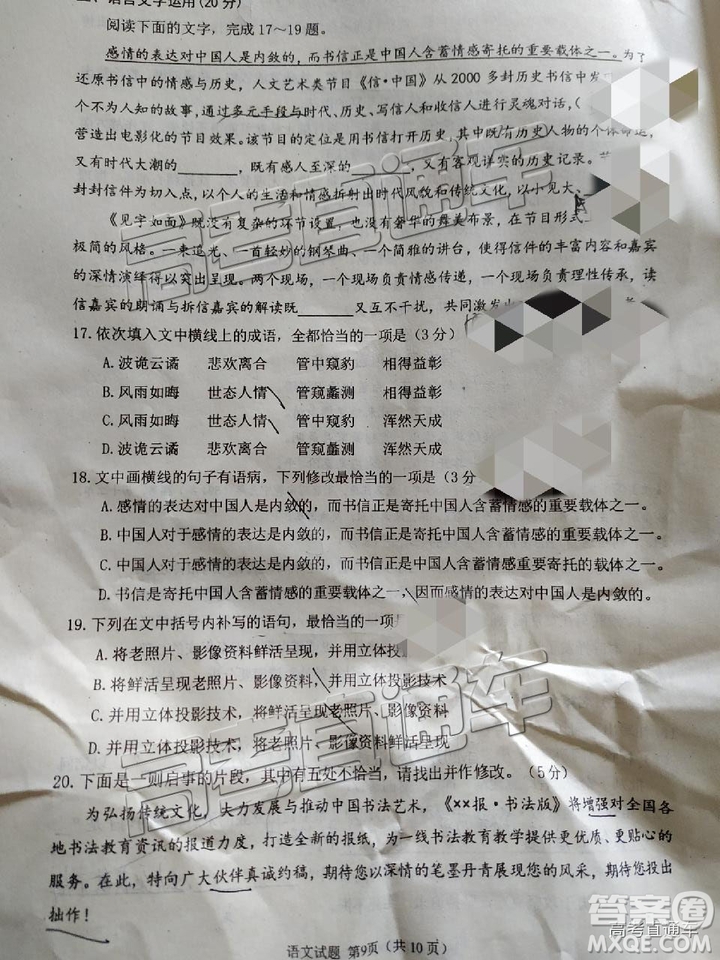 二、语言文字运用(20分)
阅读下面的文字，完成17～19题。
感情的表达对中国人是内敛的，而书信正是中国人含蓄情感寄托的重要载体之一。为了
还原书信中的情感与历史，人文艺术类节目《信·中国》从2000多封历史书信中发
个不为人知的故事，通过多元手段与时代、历史、写信人和收信人进行灵魂对话，(
营造出电影化的节目效果。该节目的定位是用书信打开历史，其中既有历史人物的个体命运，
又有时代大潮的________，既有感人至深的________，又有客观详实的历史记录。节
封封信件为切入点，以个人的生活和情感折射出时代风貌和传统文化，以小见大、
《见字如面》既没有复杂的环节设置，也没有奢华的舞美布景，在节目形式上
极简的风格。一束追光、一首轻妙的钢琴曲、一个简雅的讲台，使得信件的丰富内容和嘉宾
的深情演绎得以突出呈现。两个现场，一个现场负责情感传递，一个现场负责理性传承，读
信嘉宾的朗诵与拆信嘉宾的解读既________又互不干扰，共同激发出
17.依次填入文中横线上的成语，全都恰当的一项是(3分)
A.波诡云谲 悲欢离合 管中窥豹 相得益彰
B.风雨如晦 世态人情 管窥蠡测 相得益彰
C.风雨如晦 世态人情 管中窥豹 浑然天成
D.波诡云谲 悲欢离合 管窥蠡测 浑然天成
18.文中画横线的句子有语病，下列修改最恰当的一项是(3分
A.感情的表达对中国人是内敛的，而书信正是寄托中国人含蓄情感的重要载体之一。
B.中国人对于感情的表达是内敛的，而书信正是寄托中国人含蓄情感的重要载体之一。
C.中国人对于感情的表达是内敛的，而书信正是中国人含蓄情感重要寄托的载体之一。
D.书信是寄托中国人含蓄情感的重要载体之一，因而感情的表达对中国人是内敛的。
19.下列在文中括号内补写的语句，最恰当的一项
A.将老照片、影像资料鲜活呈现，并用立体投影
B.将鲜活呈现老照片、影像资料，并用立体投影技术
C.并用立体投影技术，将鲜活呈现老照片、影像资料
D.并用立体投影技术，将老照片、影像资料鲜活呈现
20.下面是一则启事的片段，其中有五处不恰当，请找出并作修改。(5分)
为弘扬传统文化，大力发展与推动中国书法艺术，《××报·书法版》将增强对全国各
地书法教育资讯的报道力度，打造全新的报纸，为一线书法教育教学提供更优质、更贴心的
服务。在此，特向广大伙伴真诚约稿，期待您以深情的笔墨丹青展现您的风采，期待您投出
拙作！
语文试题 第9页(共10页)
高考直通车
高考直通车
高考直通车
答案圈
MXQE.COM